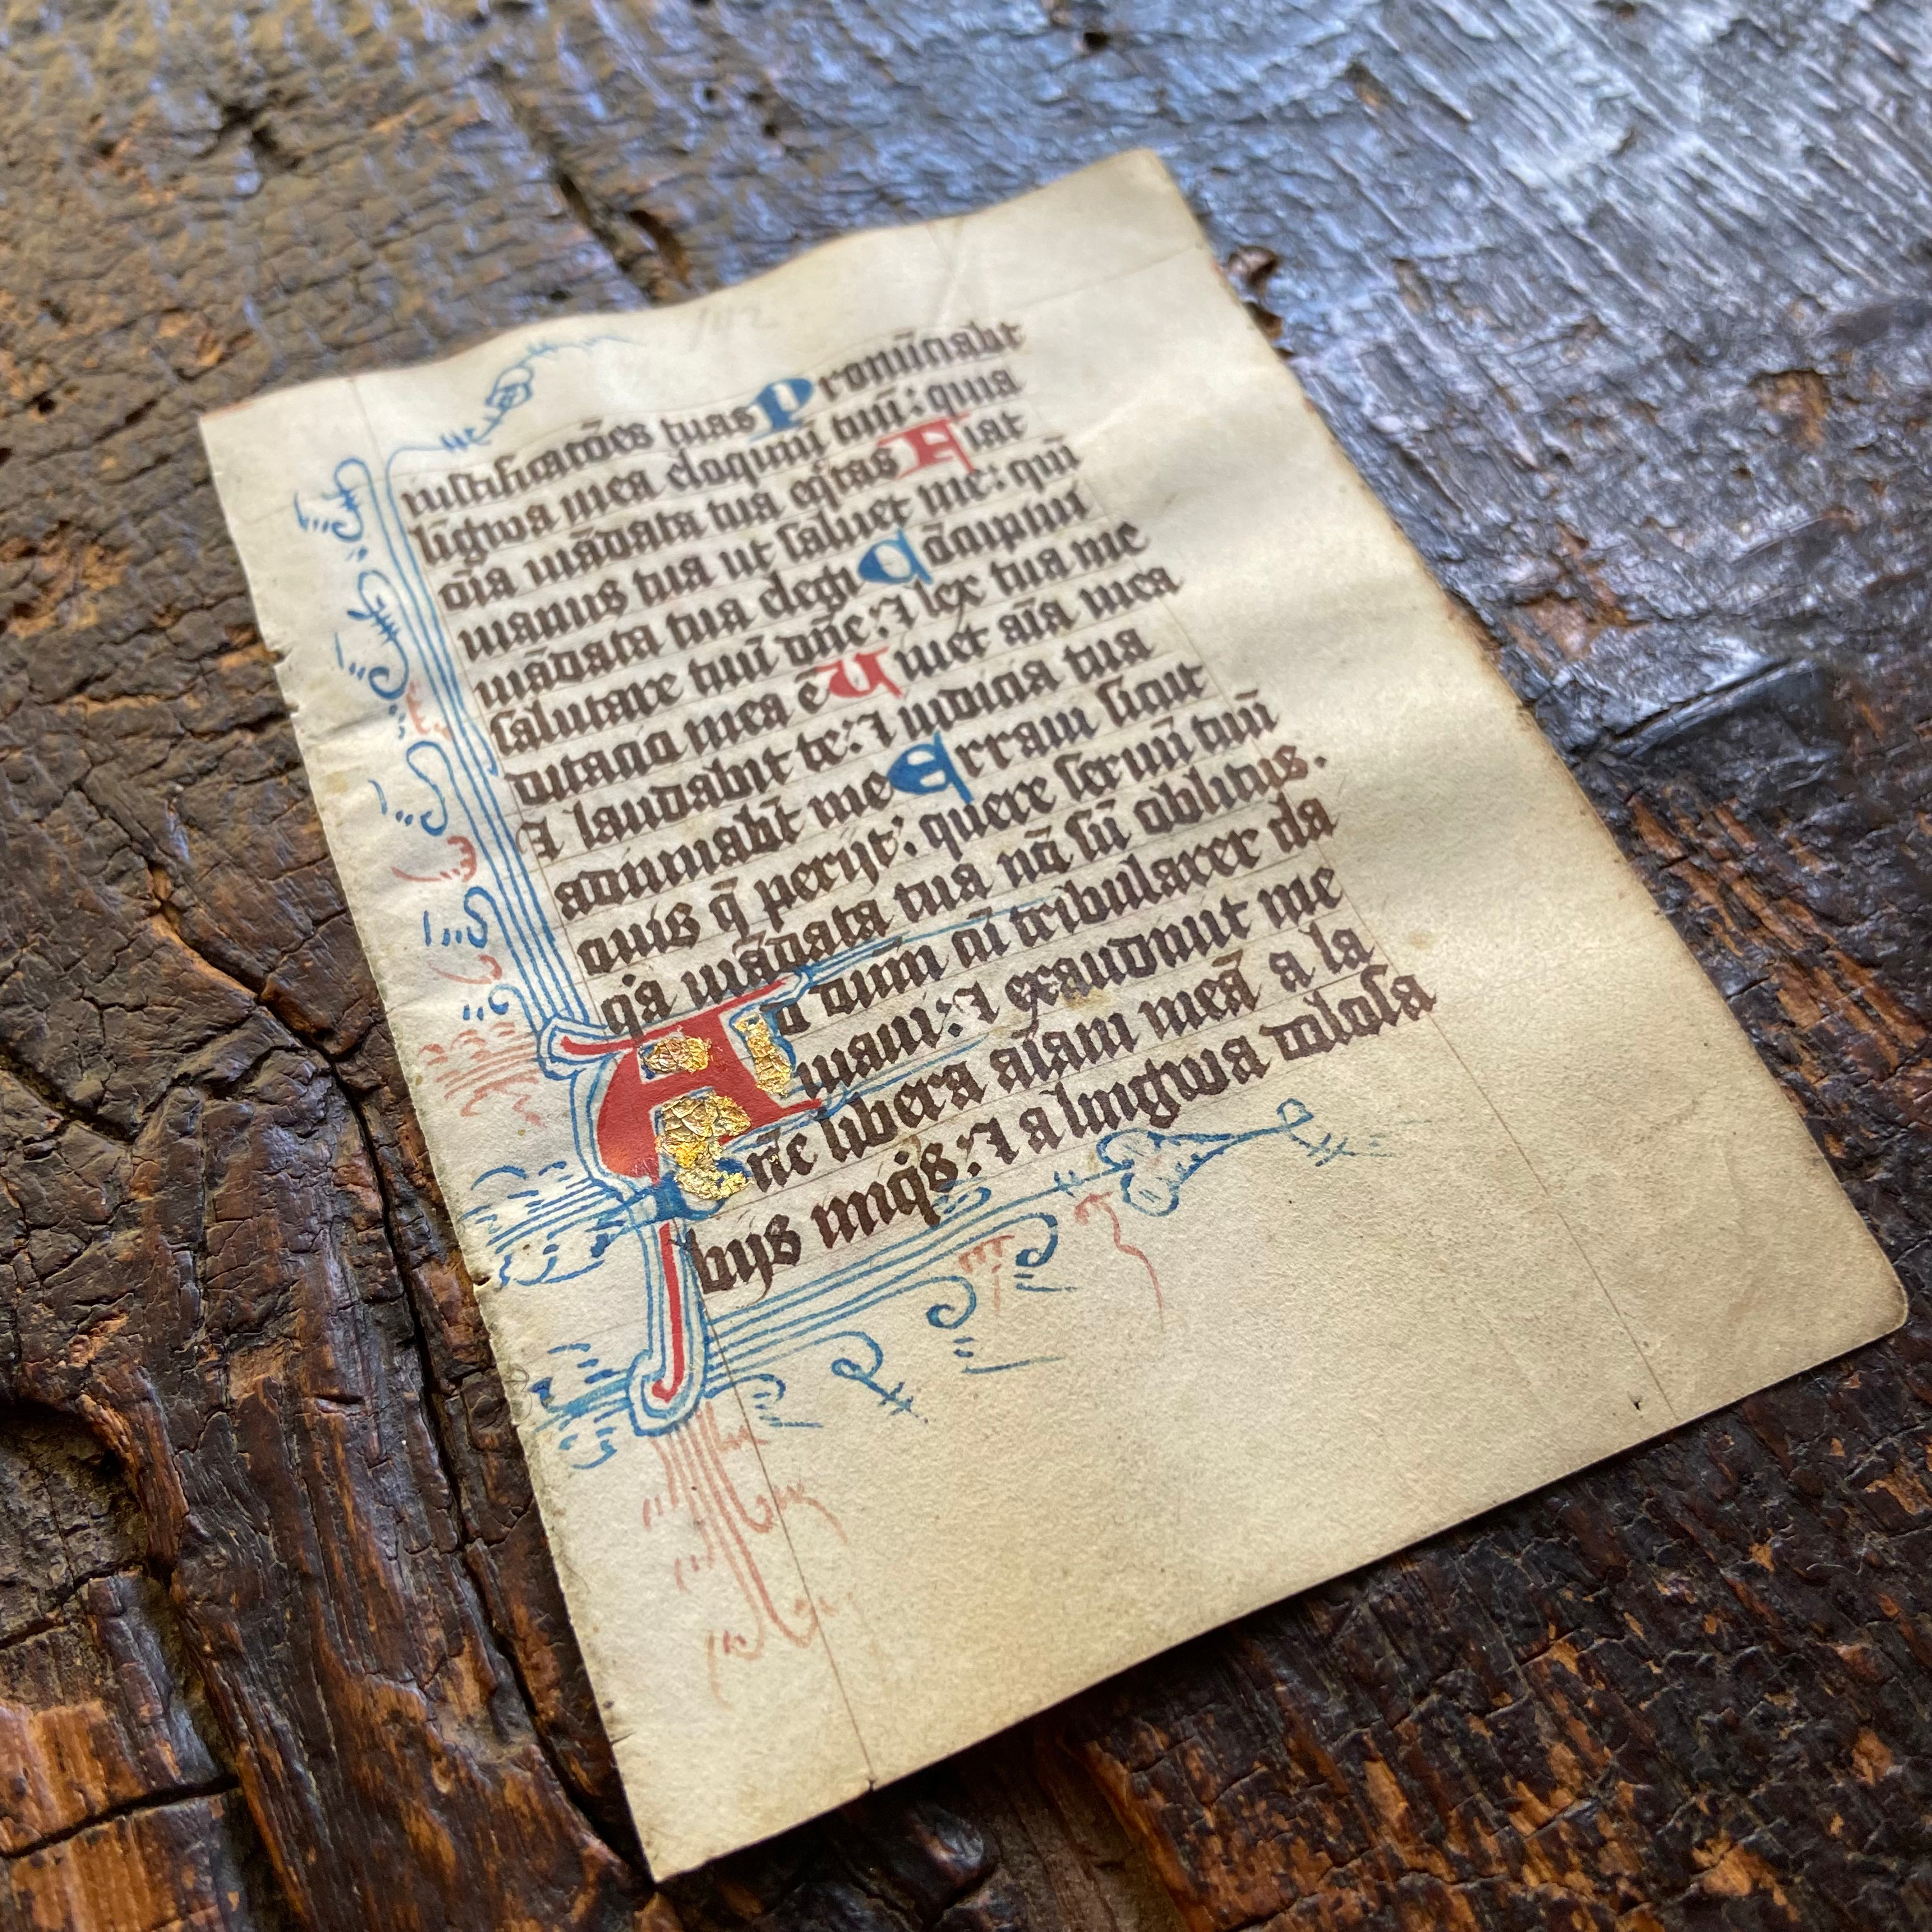 142
iustificatōes tuas Pronūciabt
līgwa mea eloquiū tuū: quia
oīa mādata tua eq̄tas Fiat
manus tua ut saluet me: qm̄
mādata tua elegi Cōcupiui
salutare tuū dn̄e: ⁊ lex tua me
ditacio mea ē Uiuet aīa mea
⁊ laudabit te: ⁊ iudicia tua
adiuuabt̄ me Erraui sicut
ouis q̄ perijt: quere seruū tuū
q̓a mādata tua nō sū oblitus.
Ad dūm cū tribularer cla
maui: ⁊ exaudiuit me
Dn̄e libera aīam meā a la
bijs iniq̓s: ⁊ a lingwa dolosa